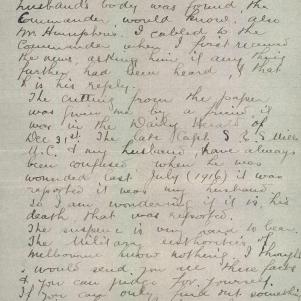 husbands body was found, the
Commander, would know, also
Mr Humphries. I cabled to the
Commander when I first received
the news, asking him if any thing
further had been heard, & that
is his reply.
The cutting from the paper
was given me by a friend it
was in the Daily Herald of
Dec 31st. The late Capt S. R. S
M.C. & my husband, have always
been confused when he was
wounded last July (1916) it was
reported it was my husband
so I am wondering if it is his
death that was reported.
The suspense is very hard to bear.
The Military authorities of
Melbourne know nothing, I thought
I would send you all these facts
& you can judge for yourself.
If you can only find out something